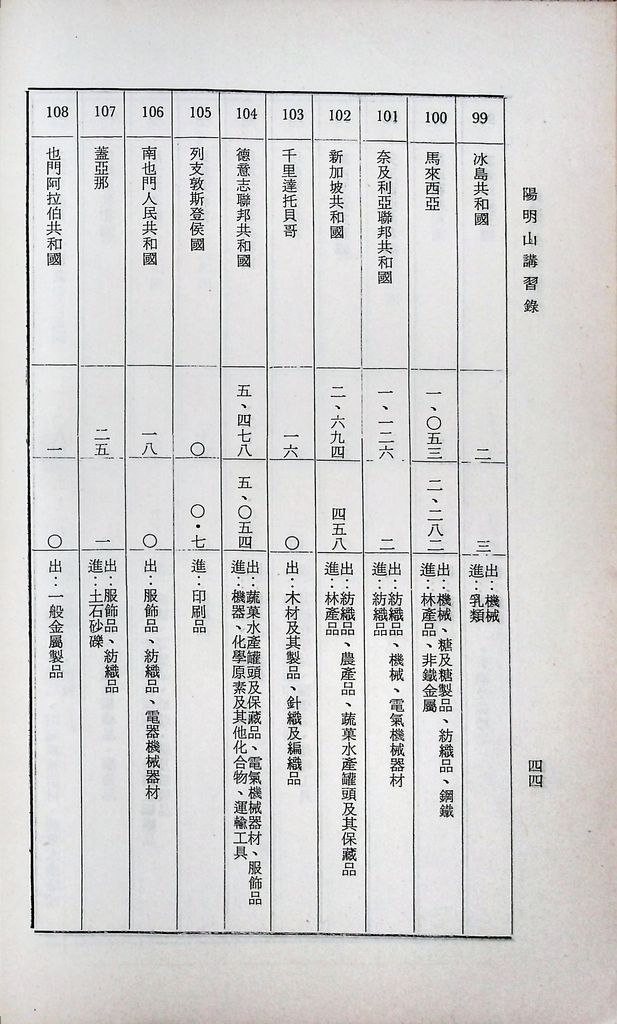 陽明山講習錄
四四
99
冰島共和國
二
三
出：機械
進：乳類
100
馬來西亞
一、〇五三
二、二八二
出：機械、糖及糖製品、紡織品、鋼鐵
進：林產品、非鐵金屬
101
奈及利亞聯邦共和國
一、一二六
二
出：紡織品、機械、電氣機械器材
進：紡織品
102
新加坡共和國
二、六九四
四五八
出：紡織品、農產品、蔬菓水產罐頭及其保藏品
進：林產品
103
千里達托貝哥
一六
〇
出：木材及其製品、針織及編織品
104
德意志聯邦共和國
五、四七八
五、〇五四
出：蔬菓水產罐頭及保藏品、電氣機械器材、服飾品
進：機器、化學原素及其他化合物、運輸工具
105
列支敦斯登侯國
〇
〇・七
進：印刷品
106
南也門人民共和國
一八
〇
出：服飾品、紡織品、電器機械器材
107
蓋亞那
二五
一
出：服飾品、紡織品
進：土石砂礫
108
也門阿拉伯共和國
一
〇
出：一般金屬製品